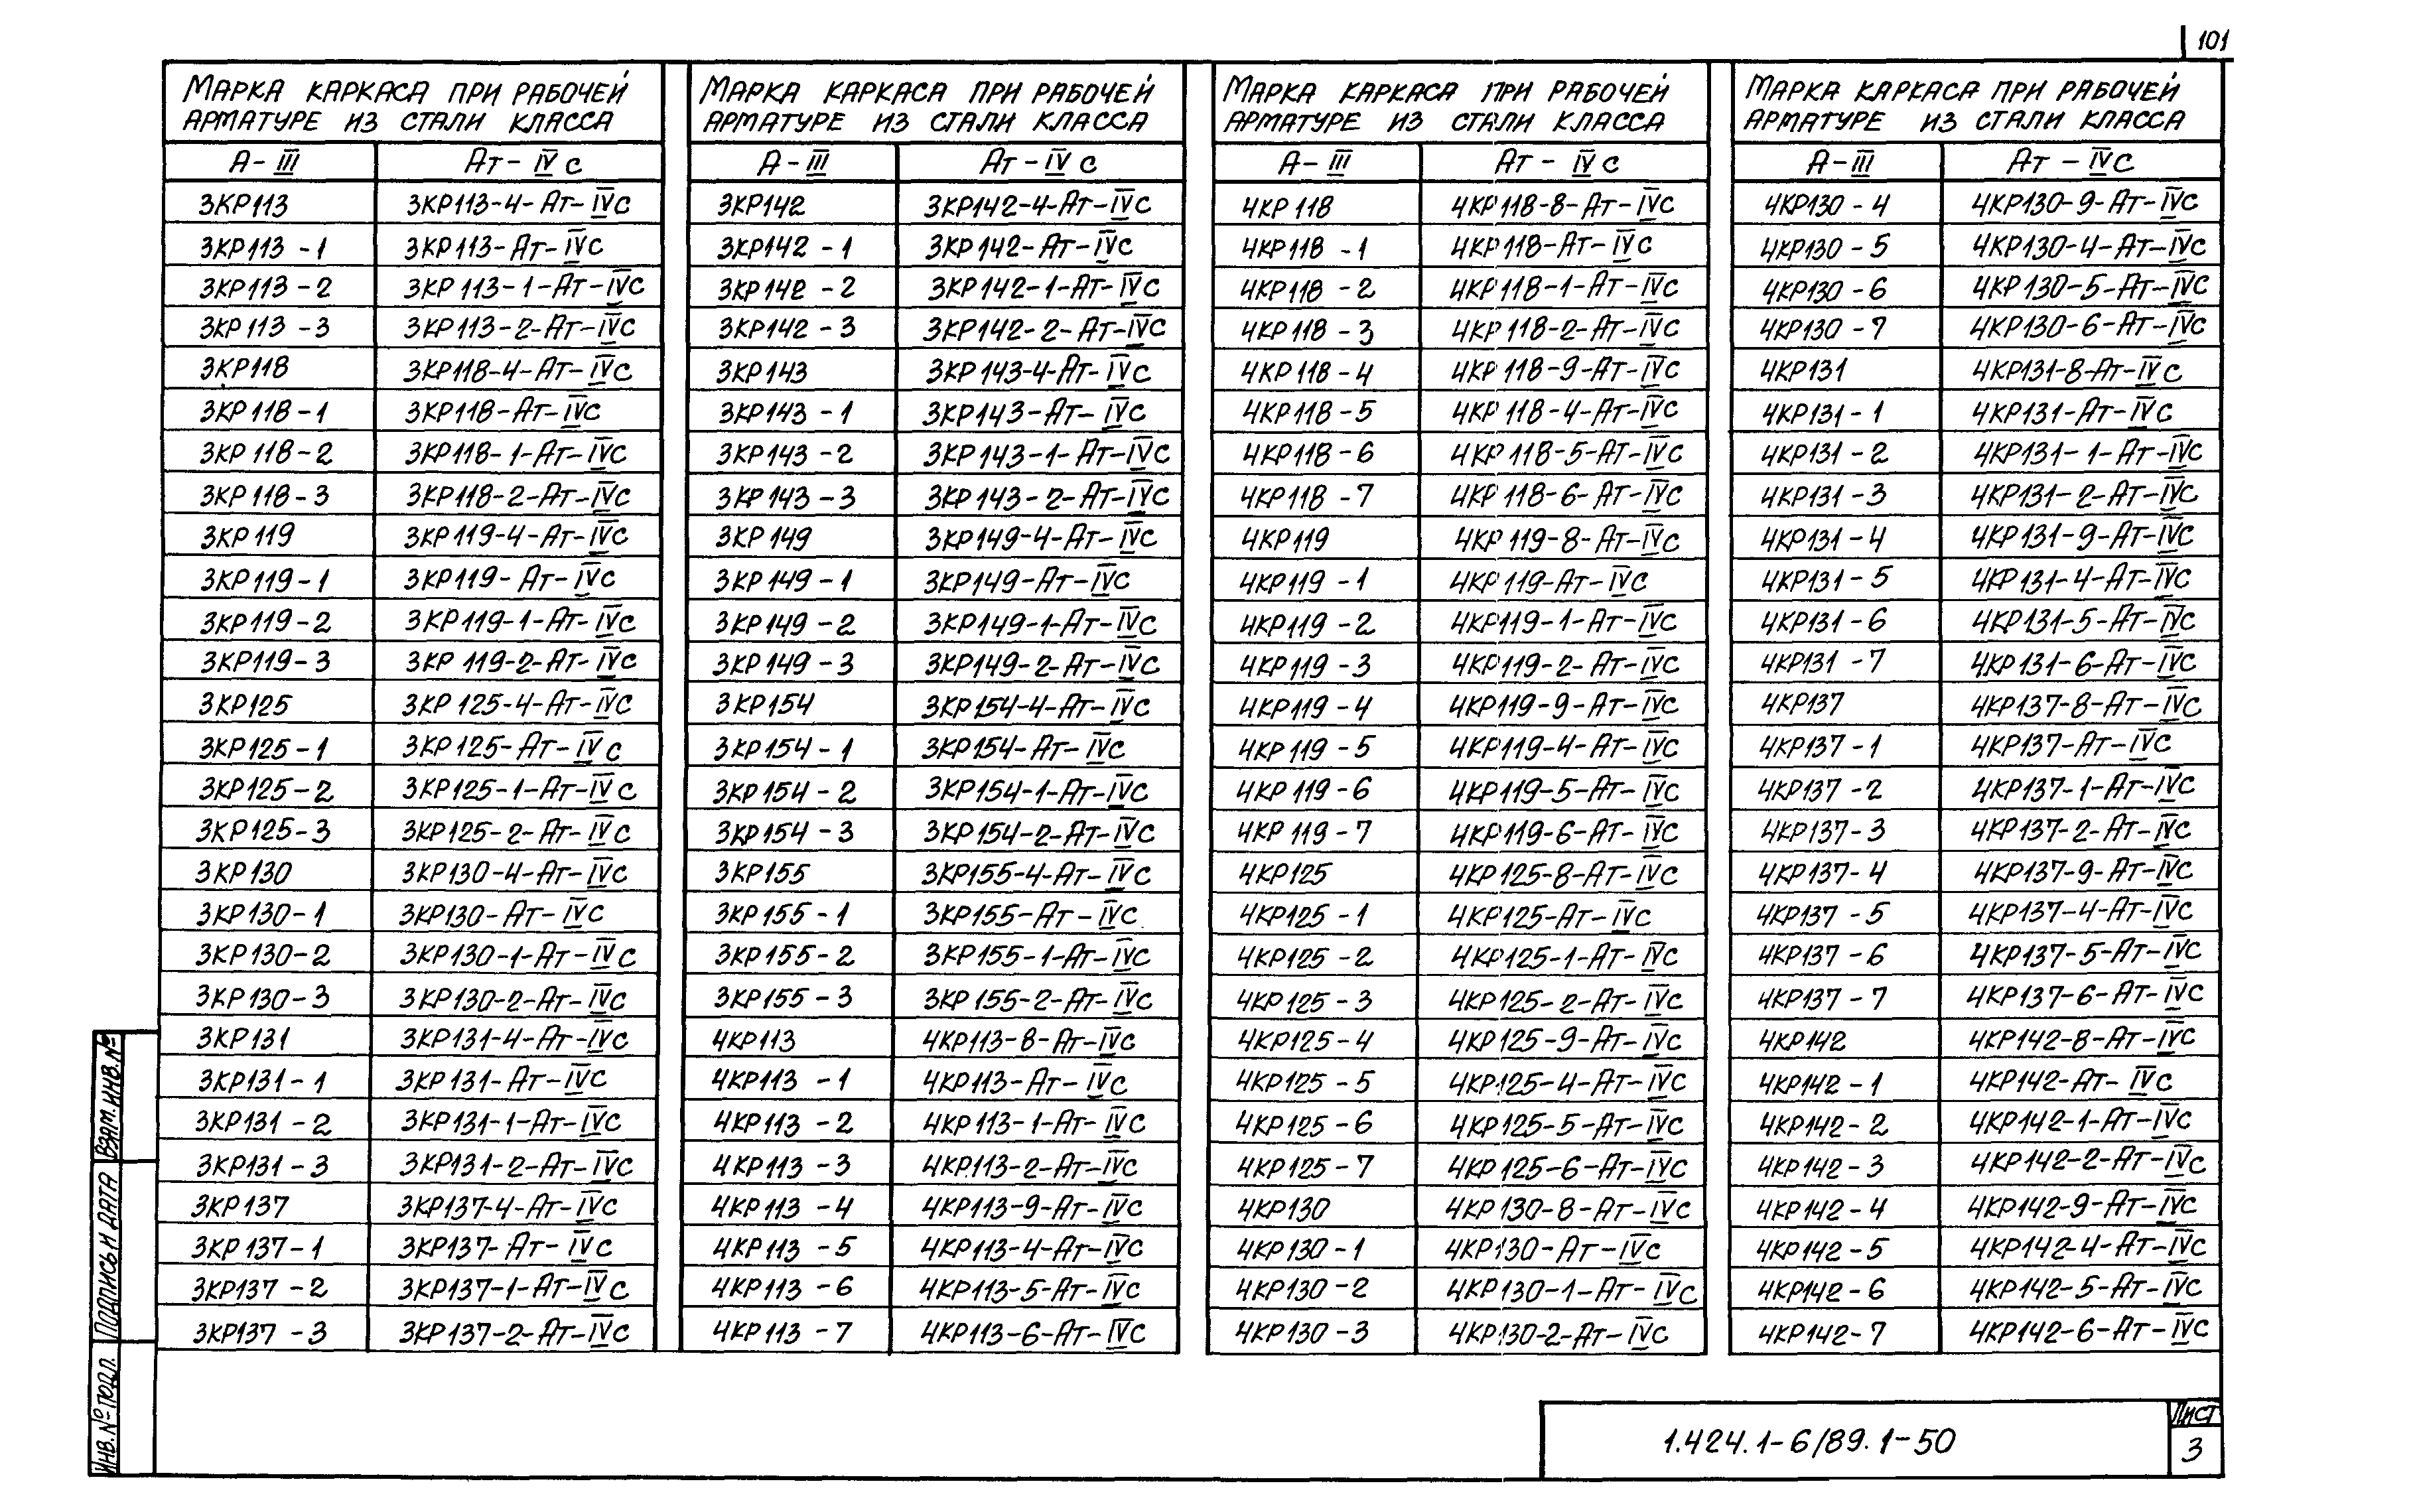 101
Марка каркаса при рабочей
арматуре из стали класса
А-III Ат-IVс
3КР113 3КР113-4-Ат-IVс
3КР113-1 3КР113-Ат-IVс
3КР113-2 3КР113-1-Ат-IVс
3КР113-3 3КР113-2-Ат-IVс
3КР118 3КР118-4-Ат-IVс
3КР118-1 3КР118-Ат-IVс
3КР118-2 3КР118-1-Ат-IVс
3КР118-3 3КР118-2-Ат-IVс
3КР119 3КР119-4-Ат-IVс
3КР119-1 3КР119-Ат-IVс
3КР119-2 3КР119-1-Ат-IVс
3КР119-3 3КР119-2-Ат-IVс
3КР125 3КР125-4-Ат-IVс
3КР125-1 3КР125-Ат-IVс
3КР125-2 3КР125-1-Ат-IVс
3КР125-3 3КР125-2-Ат-IVс
3КР130 3КР130-4-Ат-IVс
3КР130-1 3КР130-Ат-IVс
3КР130-2 3КР130-1-Ат-IVс
3КР130-3 3КР130-2-Ат-IVс
3КР131 3КР131-4-Ат-IVс
3КР131-1 3КР131-Ат-IVс
3КР131-2 3КР131-1-Ат-IVс
3КР131-3 3КР131-2-Ат-IVс
3КР137 3КР137-4-Ат-IVс
3КР137-1 3КР137-Ат-IVс
3КР137-2 3КР137-1-Ат-IVс
3КР137-3 3КР137-2-Ат-IVс
Марка каркаса при рабочей
арматуре из стали класса
А-III Ат-IVс
3КР142 3КР142-4-Ат-IVс
3КР142-1 3КР142-Ат-IVс
3КР142-2 3КР142-1-Ат-IVс
3КР142-3 3КР142-2-Ат-IVс
3КР143 3КР143-4-Ат-IVс
3КР143-1 3КР143-Ат-IVс
3КР143-2 3КР143-1-Ат-IVс
3КР143-3 3КР143-2-Ат-IVс
3КР149 3КР149-4-Ат-IVс
3КР149-1 3КР149-Ат-IVс
3КР149-2 3КР149-1-Ат-IVс
3КР149-3 3КР149-2-Ат-IVс
3КР154 3КР154-4-Ат-IVс
3КР154-1 3КР154-Ат-IVс
3КР154-2 3КР154-1-Ат-IVс
3КР154-3 3КР154-2-Ат-IVс
3КР155 3КР155-4-Ат-IVс
3КР155-1 3КР155-Ат-IVс
3КР155-2 3КР155-1-Ат-IVс
3КР155-3 3КР155-2-Ат-IVс
4КР113 4КР113-8-Ат-IVс
4КР113-1 4КР113-Ат-IVс
4КР113-2 4КР113-1-Ат-IVс
4КР113-3 4КР113-2-Ат-IVс
4КР113-4 4КР113-9-Ат-IVс
4КР113-5 4КР113-4-Ат-IVс
4КР113-6 4КР113-5-Ат-IVс
4КР113-7 4КР113-6-Ат-IVс
Марка каркаса при рабочей
арматуре из стали класса
А-III Ат-IVс
4КР118 4КР118-8-Ат-IVс
4КР118-1 4КР118-Ат-IVс
4КР118-2 4КР118-1-Ат-IVс
4КР118-3 4КР118-2-Ат-IVс
4КР118-4 4КР118-9-Ат-IVс
4КР118-5 4КР118-4-Ат-IVс
4КР118-6 4КР118-5-Ат-IVс
4КР118-7 4КР118-6-Ат-IVс
4КР119 4КР119-8-Ат-IVс
4КР119-1 4КР119-Ат-IVс
4КР119-2 4КР119-1-Ат-IVс
4КР119-3 4КР119-2-Ат-IVс
4КР119-4 4КР119-9-Ат-IVс
4КР119-5 4КР119-4-Ат-IVс
4КР119-6 4КР119-5-Ат-IVс
4КР119-7 4КР119-6-Ат-IVс
4КР125 4КР125-8-Ат-IVс
4КР125-1 4КР125-Ат-IVс
4КР125-2 4КР125-1-Ат-IVс
4КР125-3 4КР125-2-Ат-IVс
4КР125-4 4КР125-9-Ат-IVс
4КР125-5 4КР125-4-Ат-IVс
4КР125-6 4КР125-5-Ат-IVс
4КР125-7 4КР125-6-Ат-IVс
4КР130 4КР130-8-Ат-IVс
4КР130-1 4КР130-Ат-IVс
4КР130-2 4КР130-1-Ат-IVс
4КР130-3 4КР130-2-Ат-IVс
Марка каркаса при рабочей
арматуре из стали класса
А-III Ат-IVс
4КР130-4 4КР130-9-Ат-IVс
4КР130-5 4КР130-4-Ат-IVс
4КР130-6 4КР130-5-Ат-IVс
4КР130-7 4КР130-6-Ат-IVс
4КР131 4КР131-8-Ат-IVс
4КР131-1 4КР131-Ат-IVс
4КР131-2 4КР131-1-Ат-IVс
4КР131-3 4КР131-2-Ат-IVс
4КР131-4 4КР131-9-Ат-IVс
4КР131-5 4КР131-4-Ат-IVс
4КР131-6 4КР131-5-Ат-IVс
4КР131-7 4КР131-6-Ат-IVс
4КР137 4КР137-8-Ат-IVс
4КР137-1 4КР137-Ат-IVс
4КР137-2 4КР137-1-Ат-IVс
4КР137-3 4КР137-2-Ат-IVс
4КР137-4 4КР137-9-Ат-IVс
4КР137-5 4КР137-4-Ат-IVс
4КР137-6 4КР137-5-Ат-IVс
4КР137-7 4КР137-6-Ат-IVс
4КР142 4КР142-8-Ат-IVс
4КР142-1 4КР142-Ат-IVс
4КР142-2 4КР142-1-Ат-IVс
4КР142-3 4КР142-2-Ат-IVс
4КР142-4 4КР142-9-Ат-IVс
4КР142-5 4КР142-4-Ат-IVс
4КР142-6 4КР142-5-Ат-IVс
4КР142-7 4КР142-6-Ат-IVс
Взам.инв.№
Подпись и дата
Инв.№ подл.
1.424.1-6/89.1-50
Лист
3